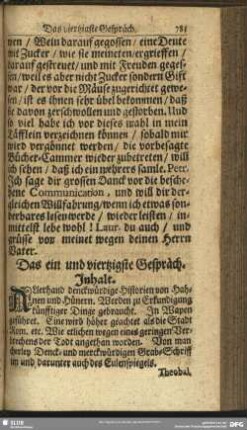 Das viertzigste Gespräch. 781
ren / Wein darauf gegossen / eine Deute
mit Zucker / wie sie meineten / ergrieffen /
darauf gestreuet / und mit Freuden gegess-
sen / weil es aber nicht Zucker sondern Gift
war / der vor die Mäuse zugerichtet gewe-
sen / ist es ihnen sehr übel bekommen / daß
sie davon zerschwollen und gestorben. Und
so viel habe ich vor dieses mahl in mein
Täfflein verzeichnen können / sobald mir
wird vergönnet werden / die vorbesagte
Bücher-Cammer wieder zubetreten / will
ich sehen / daß ich ein mehrers samle. Peer.
Ich sage dir grossen Danck vor die besche-
hene Communication, und will dir der-
gleichen Willfahrung / wenn ich etwas son-
derbares lesen werde / wieder leisten / in-
mittelst lebe wohl! Laur. du auch / und
grüsse von meinet wegen deinen Herrn
Vater.
Das ein und viertzigste Gespräch.
Inhalt.
Allerhand denckwürdige Historien von Hah-
nen und Hünern. Werden zu Erkundigung
künfftiger Dinge gebraucht. In Wapen
geführet. Eine wird höher geachtet als die Stadt
Rom. etc. Wie etlichen wegen eines geringen Ver-
brechens der Todt angethan worden. Von man
cherley Denck- und merckwürdigen Grabe-Schriff
ten und darunter auch des Eulenspiegels.
Theobal,
SLUB